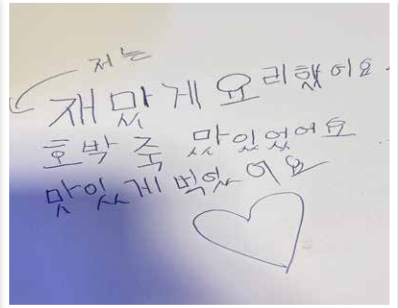 저는
재맜게 요리했어요.
호박죽 맛있었어요
맛있게 먹었어요